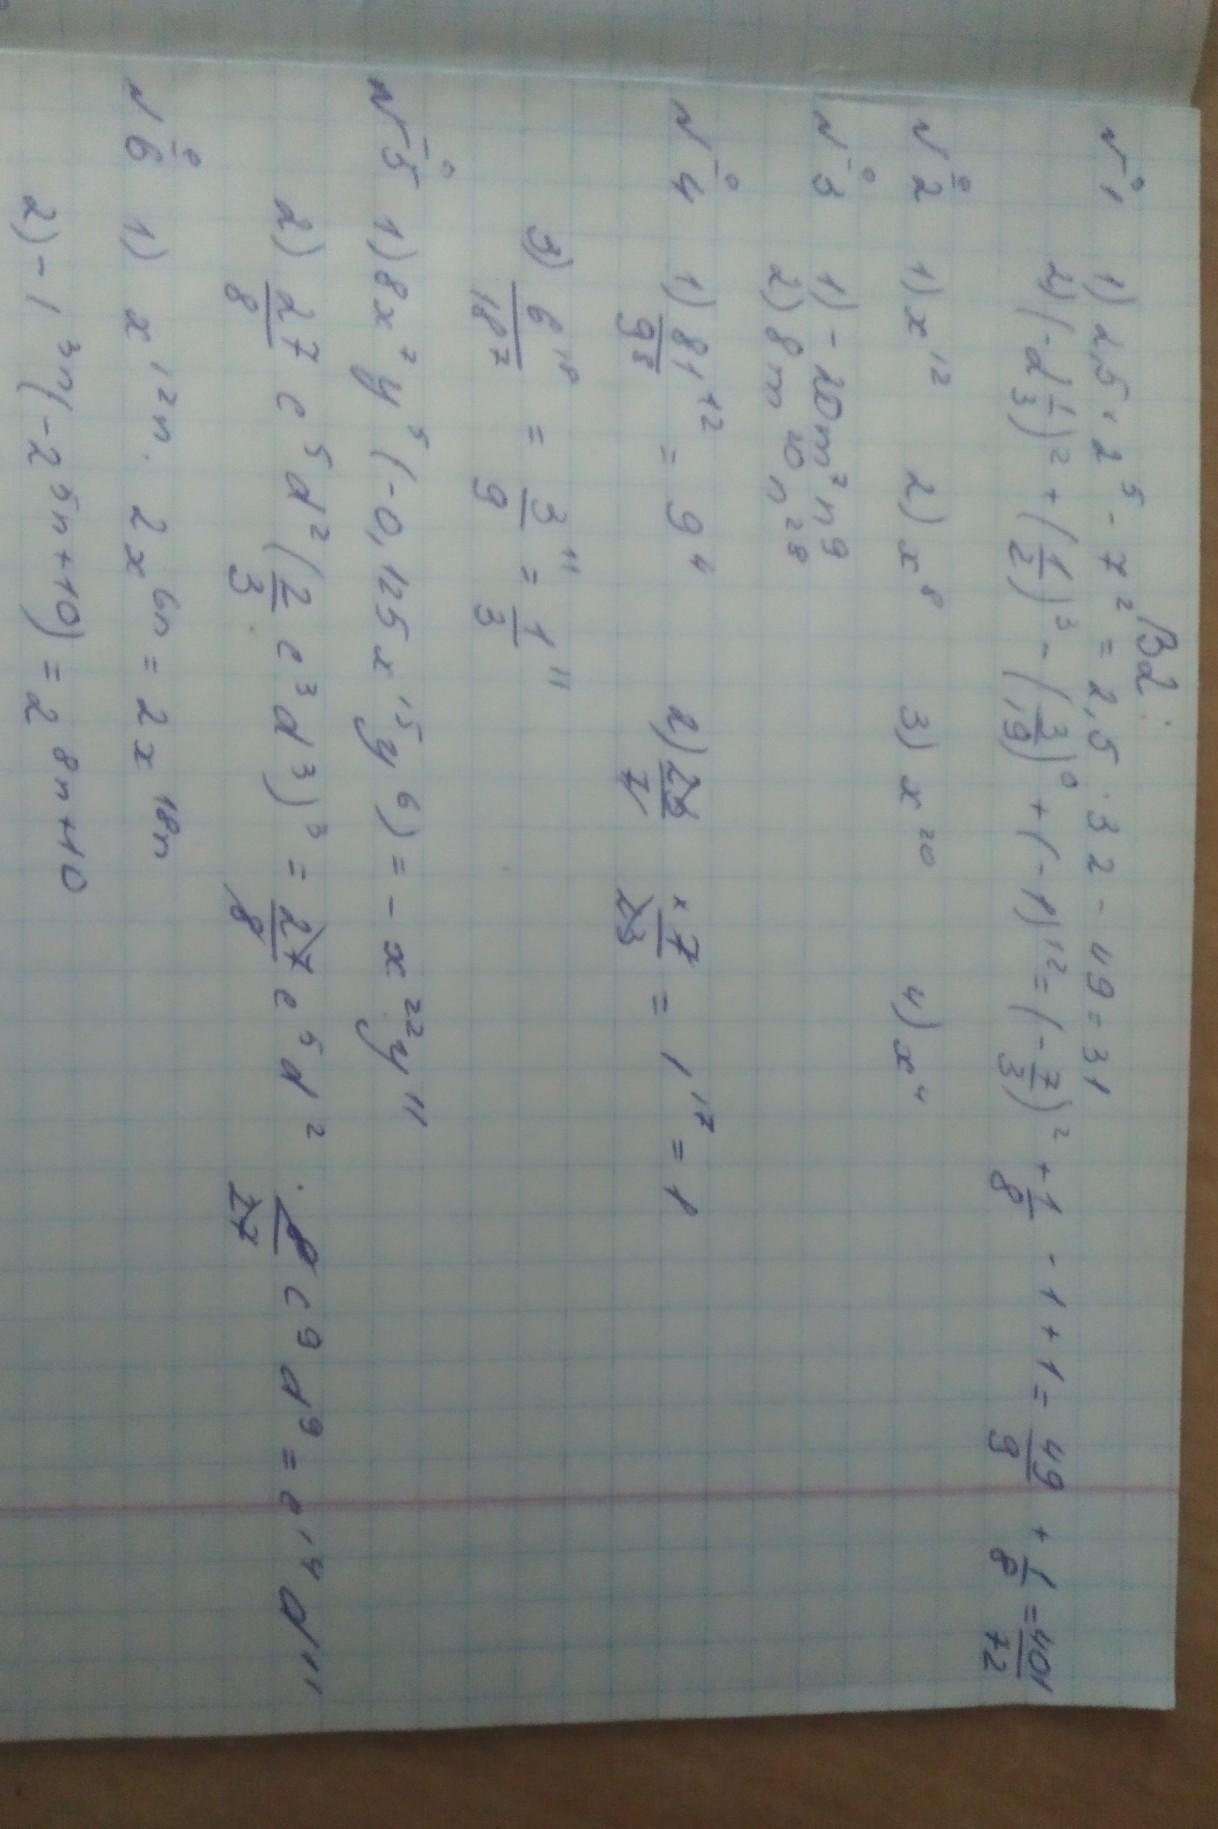 В2:
№1 1) 2,5 · 2⁵ - 7² = 2,5 · 32 - 49 = 31
2) (-2 1/3)² + (1/2)³ - (3/19)⁰ + (-1)¹² = (-7/3)² + 1/8 - 1 + 1 = 49/9 + 1/8 = 401/72
№2 1) x¹² 2) x⁸ 3) x²⁰ 4) x⁴
№3 1) -20m⁷n⁹
2) 8m¹⁰n²⁸
№4 1) 81¹²/9⁸ = 9⁴ 2) × = 1¹⁷ = 1
3) 6¹⁸/18⁷ = 3¹¹/9 = 1¹¹/3
№5 1) 8x⁷y⁵(-0,125x¹⁵y⁶) = -x²²y¹¹
2) 27/8 c⁵d²(2/3 c³d³)³ = 27/8 c⁵d² · 8/27 c⁹d⁹ = c¹⁴d¹¹
№6 1) x¹²ⁿ · 2x⁶ⁿ = 2x¹⁸ⁿ
2) -1³ⁿ(-2⁵ⁿ⁺¹⁰) = 2⁸ⁿ⁺¹⁰